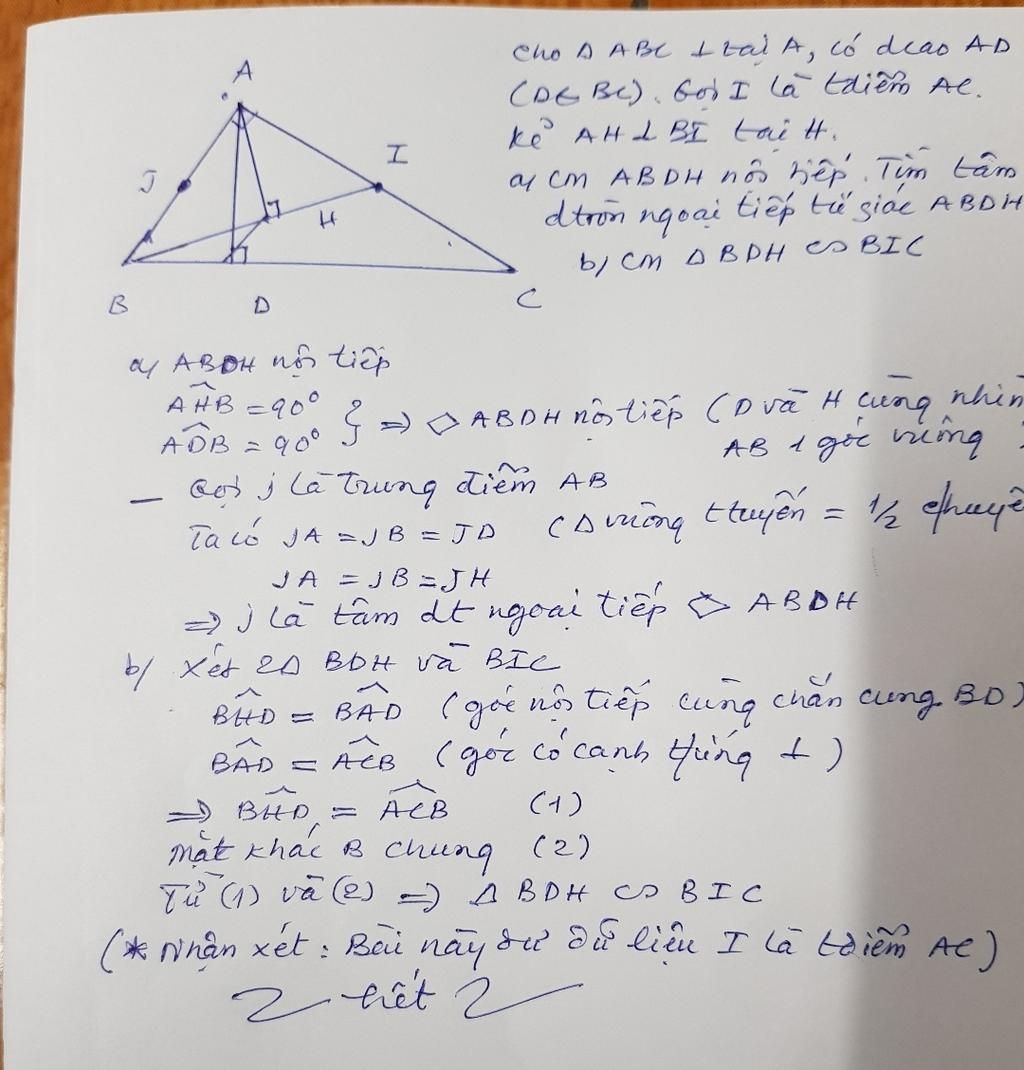 A
Cho Δ ABC ⊥ tại A, có đcao AD
(D∈ BC). Gọi I là tđiểm AC.
Kẻ AH ⊥ BI tại H.
I
J
a/ CM ABDH nội tiếp. Tìm tâm
H
đtròn ngoại tiếp tứ giác ABDH
b/ CM Δ BDH ∽ BIC
B D C
a/ ABDH nội tiếp
AHB = 90°
ADB = 90° } => ◇ ABDH nội tiếp (D và H cùng nhìn
AB 1 góc vuông
- Gọi J là trung điểm AB
Ta có JA = JB = JD (Δ vuông ttuyến = 1/2 chuyề
JA = JB = JH
=> J là tâm đt ngoại tiếp ◇ ABDH
b/ Xét 2Δ BDH và BIC
BHD = BAD (góc nội tiếp cùng chắn cung BD)
BAD = ACB (góc có cạnh tứng ⊥)
=> BHD = ACB (1)
Mặt khác B chung (2)
Từ (1) và (2) => Δ BDH ∽ BIC
(* Nhận xét: Bài này dư dữ liệu I là tđiểm AC)
hết